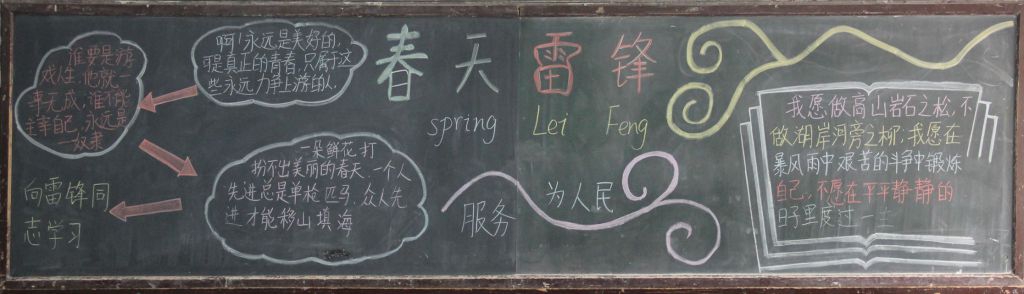 谁要是游
戏人生,他就一
事无成,谁不能
主宰自己,永远是
一奴隶
啊!永远是美好的,
可是真正的青春,只属于这
些永远力争上游的人.
一朵鲜花打
扮不出美丽的春天,一个人
先进总是单枪匹马,众人先
进才能移山填海
向雷锋同
志学习
春天雷锋
spring Lei Feng
为人民
服务
我愿做高山岩石之松,不
做湖岸河旁之柳;我愿在
暴风雨中艰苦的斗争中锻炼
自己,不愿在平平静静的
日子里度过